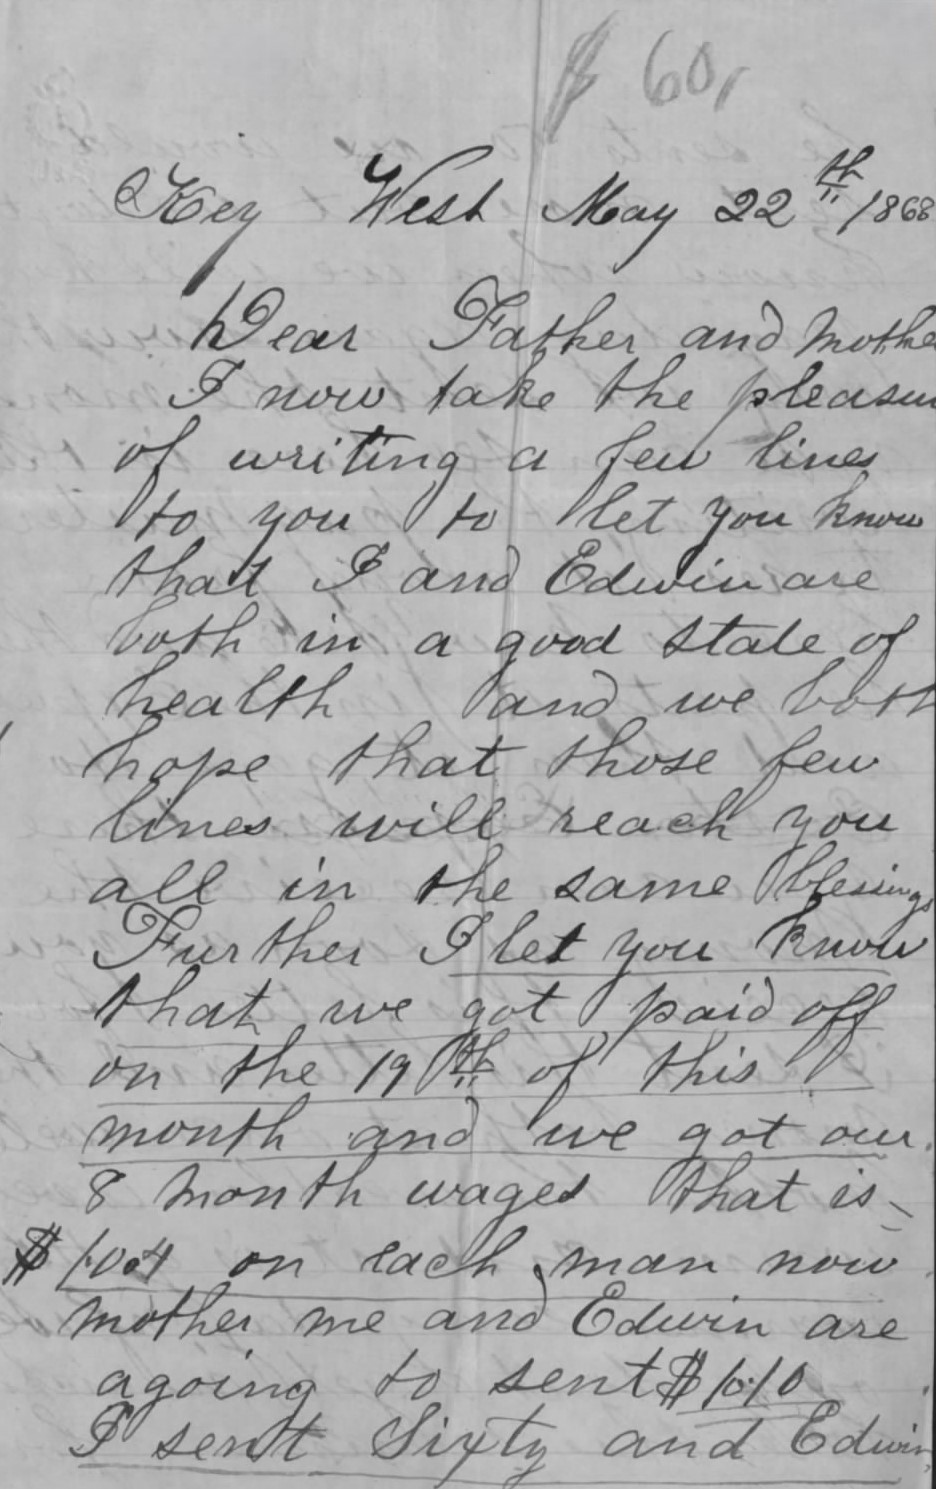 $ 60,
Key West May 22th /1868
Dear Father and Mothe
I now take the pleasu
of writing a few lines
to you to let you know
that I and Edwin are
both in a good state of
health and we both
hope that those few
lines will reach you
all in the same blesings
Further I let you know
that we got paid off
on the 19th of this
month and we got our
8 month wages that is
$104 on each man now
mother me and Edwin are
agoing to sent $110
I sent Sixty and Edwin